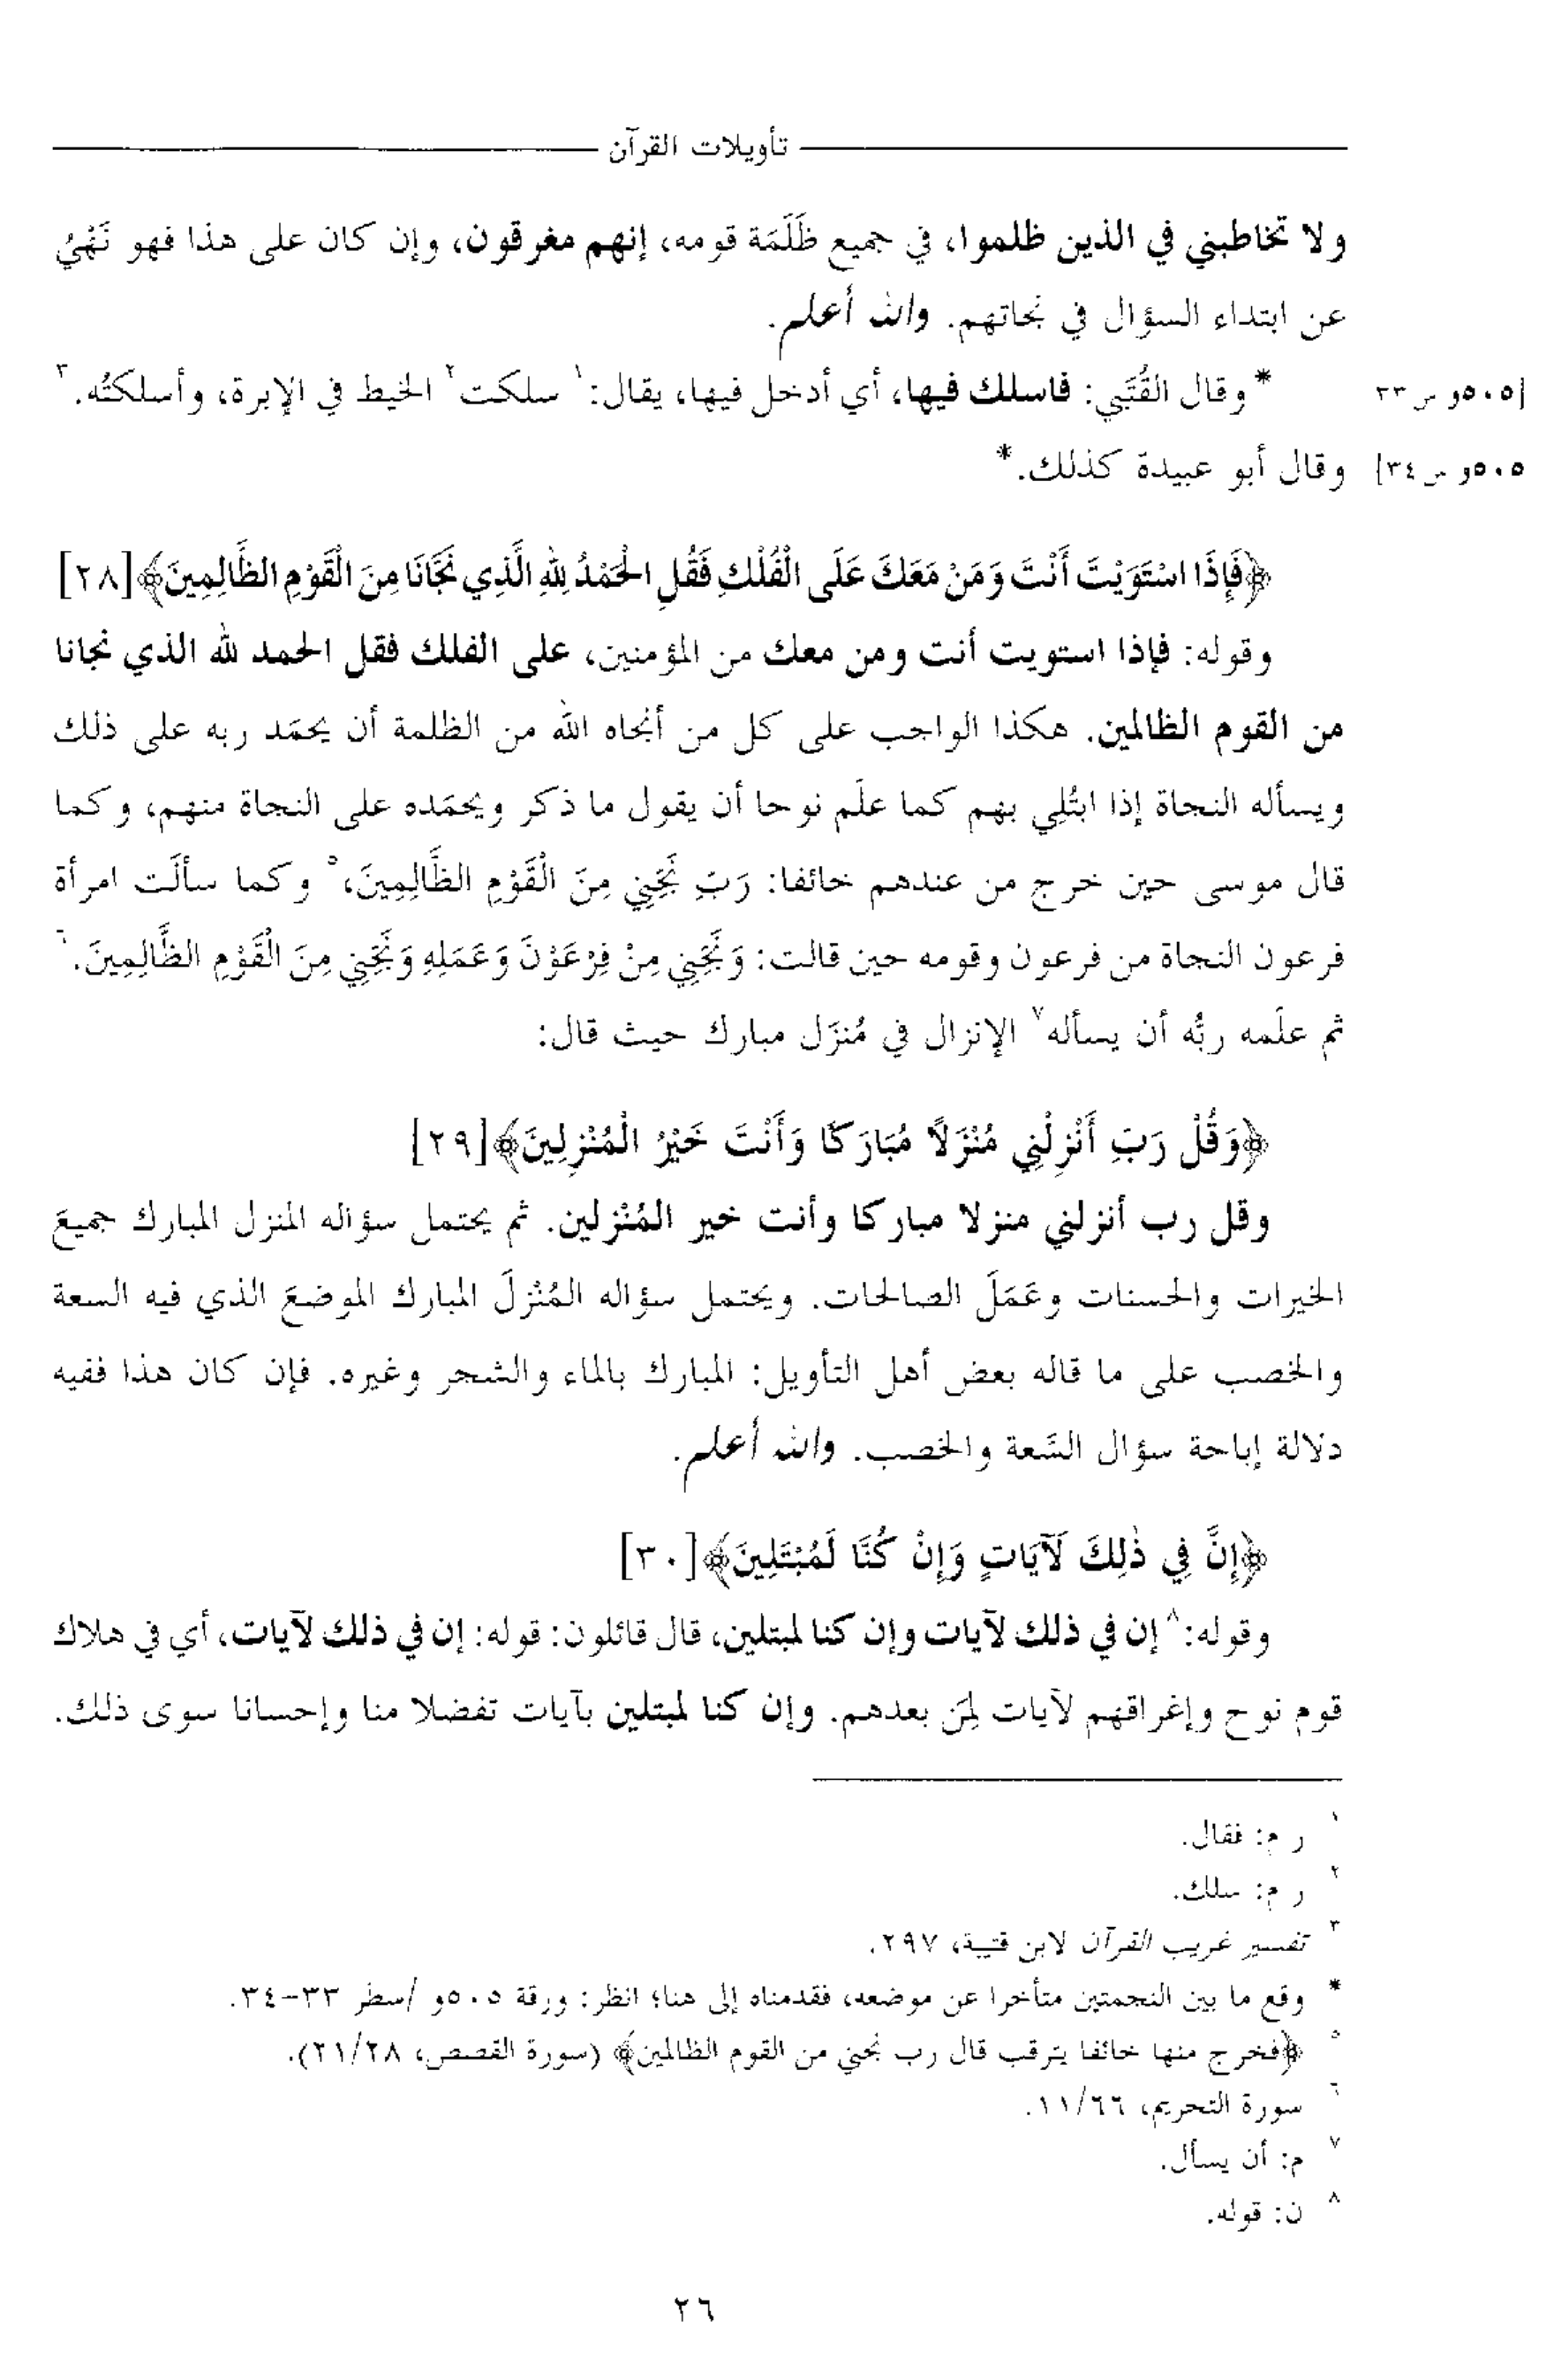 تأويلات القرآن
ولا تخاطبني في الذين ظلموا، في جميع ظَلَمَة قومه، إنهم مغرقون، وإن كان على هذا فهو نَهْيُ
عن ابتداء السؤال في نجاتهم. والله أعلم.
[٥٠٥و س ٣٣ * وقال القُتَبي: فاسلك فيها، أي أدخل فيها، يقال:١ سلكت٢ الخيط في الإبرة، وأسلكتُه.٣
٥٠٥و س ٣٤] وقال أبو عبيدة كذلك.*
﴿فَإِذَا اسْتَوَيْتَ أَنْتَ وَمَنْ مَعَكَ عَلَى الْفُلْكِ فَقُلِ الْحَمْدُ لِلهِ الَّذِي نَجَّانَا مِنَ الْقَوْمِ الظَّالِمِينَ﴾[٢٨]
وقوله: فإذا استويت أنت ومن معك من المؤمنين، على الفلك فقل الحمد لله الذي نجانا
من القوم الظالمين. هكذا الواجب على كل من أنجاه الله من الظلمة أن يحمَد ربه على ذلك
ويسأله النجاة إذا ابتُلِي بهم كما علّم نوحا أن يقول ما ذكر ويحمَده على النجاة منهم، وكما
قال موسى حين خرج من عندهم خائفا: رَبِّ نَجِّنِي مِنَ الْقَوْمِ الظَّالِمِينَ،٥ وكما سألَت امرأة
فرعون النجاة من فرعون وقومه حين قالت: وَنَجِّنِي مِنْ فِرْعَوْنَ وَعَمَلِهِ وَنَجِّنِي مِنَ الْقَوْمِ الظَّالِمِينَ.٦
ثم علّمه ربُّه أن يسأله٧ الإنزال في مُنزَل مبارك حيث قال:
﴿وَقُلْ رَبِّ أَنْزِلْنِي مُنْزَلًا مُبَارَكًا وَأَنْتَ خَيْرُ الْمُنْزِلِينَ﴾[٢٩]
وقل رب أنزلني منزلا مباركا وأنت خير المُنْزِلين. ثم يحتمل سؤاله المنزل المبارك جميعَ
الخيرات والحسنات وعَمَلَ الصالحات. ويحتمل سؤاله المُنْزلَ المبارك الموضعَ الذي فيه السعة
والخصب على ما قاله بعض أهل التأويل: المبارك بالماء والشجر وغيره. فإن كان هذا ففيه
دلالة إباحة سؤال السَّعة والخصب. والله أعلم.
﴿إِنَّ فِي ذٰلِكَ لَآيَاتٍ وَإِنْ كُنَّا لَمُبْتَلِينَ﴾[٣٠]
وقوله:٨ إن في ذلك لآيات وإن كنا لمبتلين، قال قائلون: قوله: إن في ذلك لآيات، أي في هلاك
قوم نوح وإغراقهم لآيات لِمَن بعدهم. وإن كنا لمبتلين بآيات تفضلا منا وإحسانا سوى ذلك.
١ ر م: فقال.
٢ ر م: سلك.
٣ تفسير غريب القرآن لابن قتيبة، ٢٩٧.
* وقع ما بين النجمتين متأخرا عن موضعه، فقدمناه إلى هنا؛ انظر: ورقة ٥٠٥و/سطر ٣٣-٣٤.
٥ ﴿فخرج منها خائفا يترقب قال رب نجني من القوم الظالمين﴾ (سورة القصص، ٢١/٢٨).
٦ سورة التحريم، ١١/٦٦.
٧ م: أن يسأل.
٨ ن: قوله.
٢٦